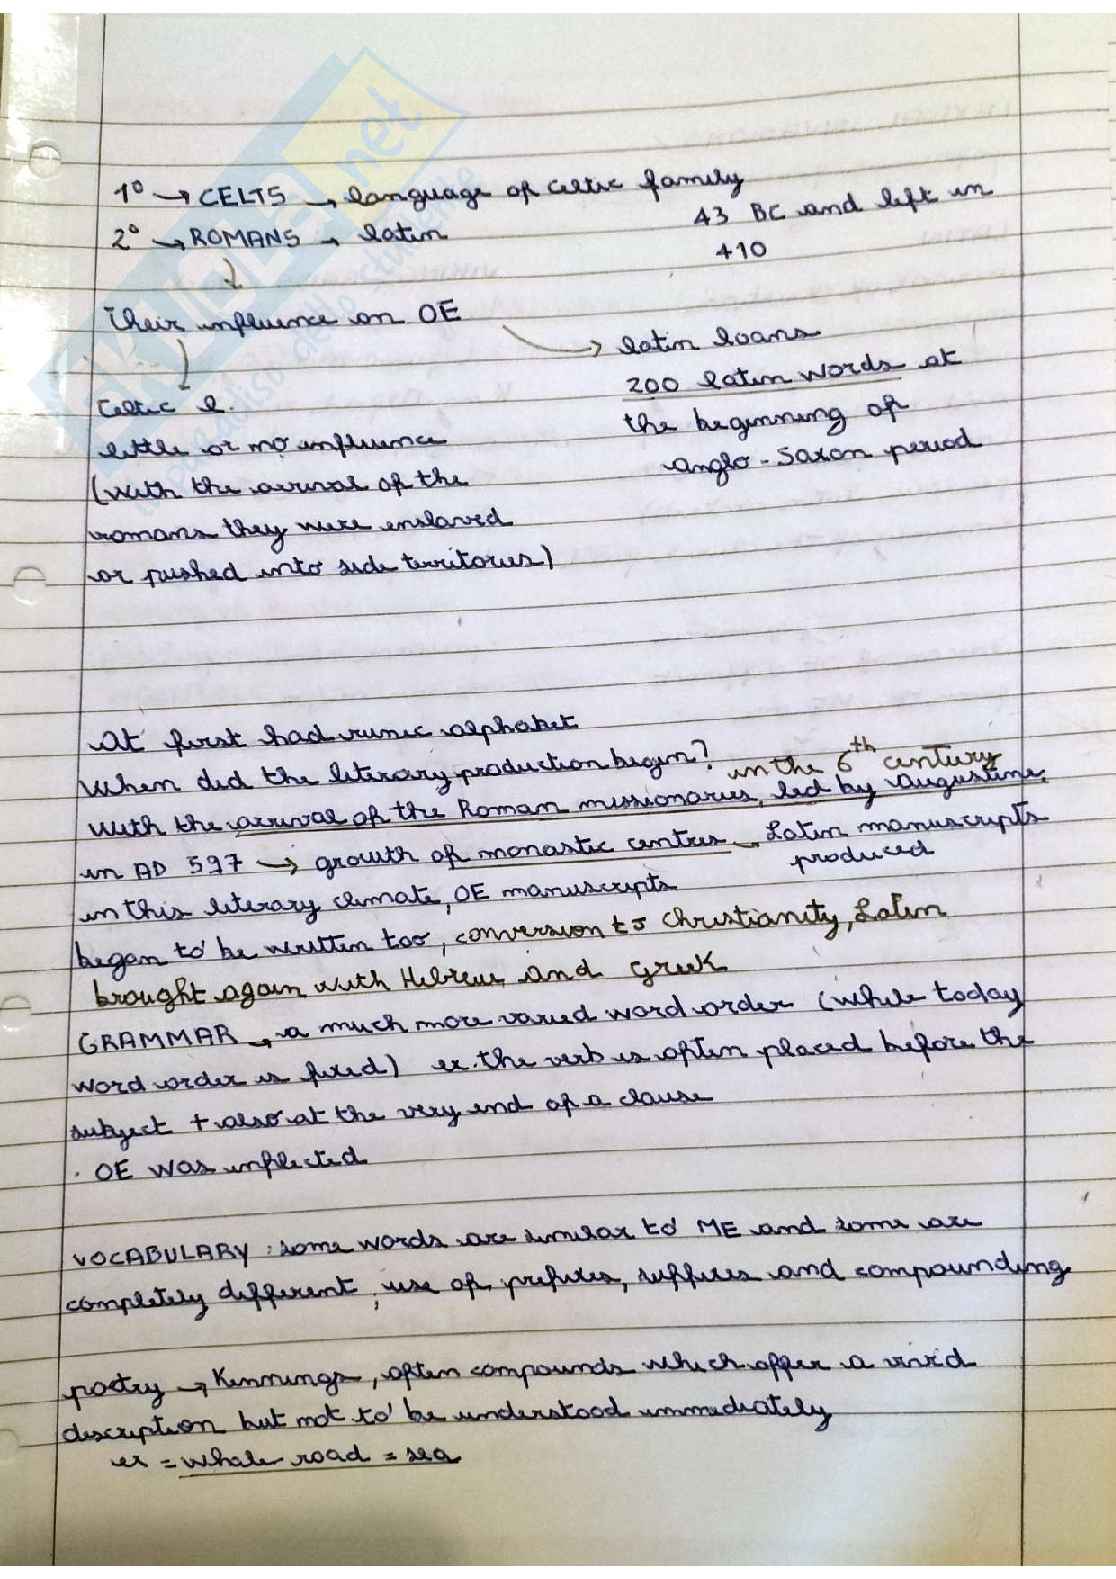 1° → CELTS → language of celtic family
2° → ROMANS → latin
43 BC and left in
410
Their influence on OE
Celtic l.
little or no influence
(with the arrival of the
romans they were enslaved
or pushed into side territories)
latin loans
200 latin words at
the beginning of
anglo-saxon period
At first had runic alphabet
When did the literary production begin? in the 6th century
With the arrival of the Roman missionaries, led by Augustine,
in AD 597 → growth of monastic centres → Latin manuscripts
produced
in this literary climate, OE manuscripts
began to be written too, conversion to Christianity, Latin
brought again with Hebrew and Greek
GRAMMAR → a much more varied word order (while today
word order is fixed) ex. the verb is often placed before the
subject + also at the very end of a clause
. OE was inflected
VOCABULARY: some words are similar to ME and some are
completely different, use of prefixes, suffixes and compounding
poetry → Kennings, often compounds which offer a vivid
description but not to be understood immediately
ex = whale road = sea